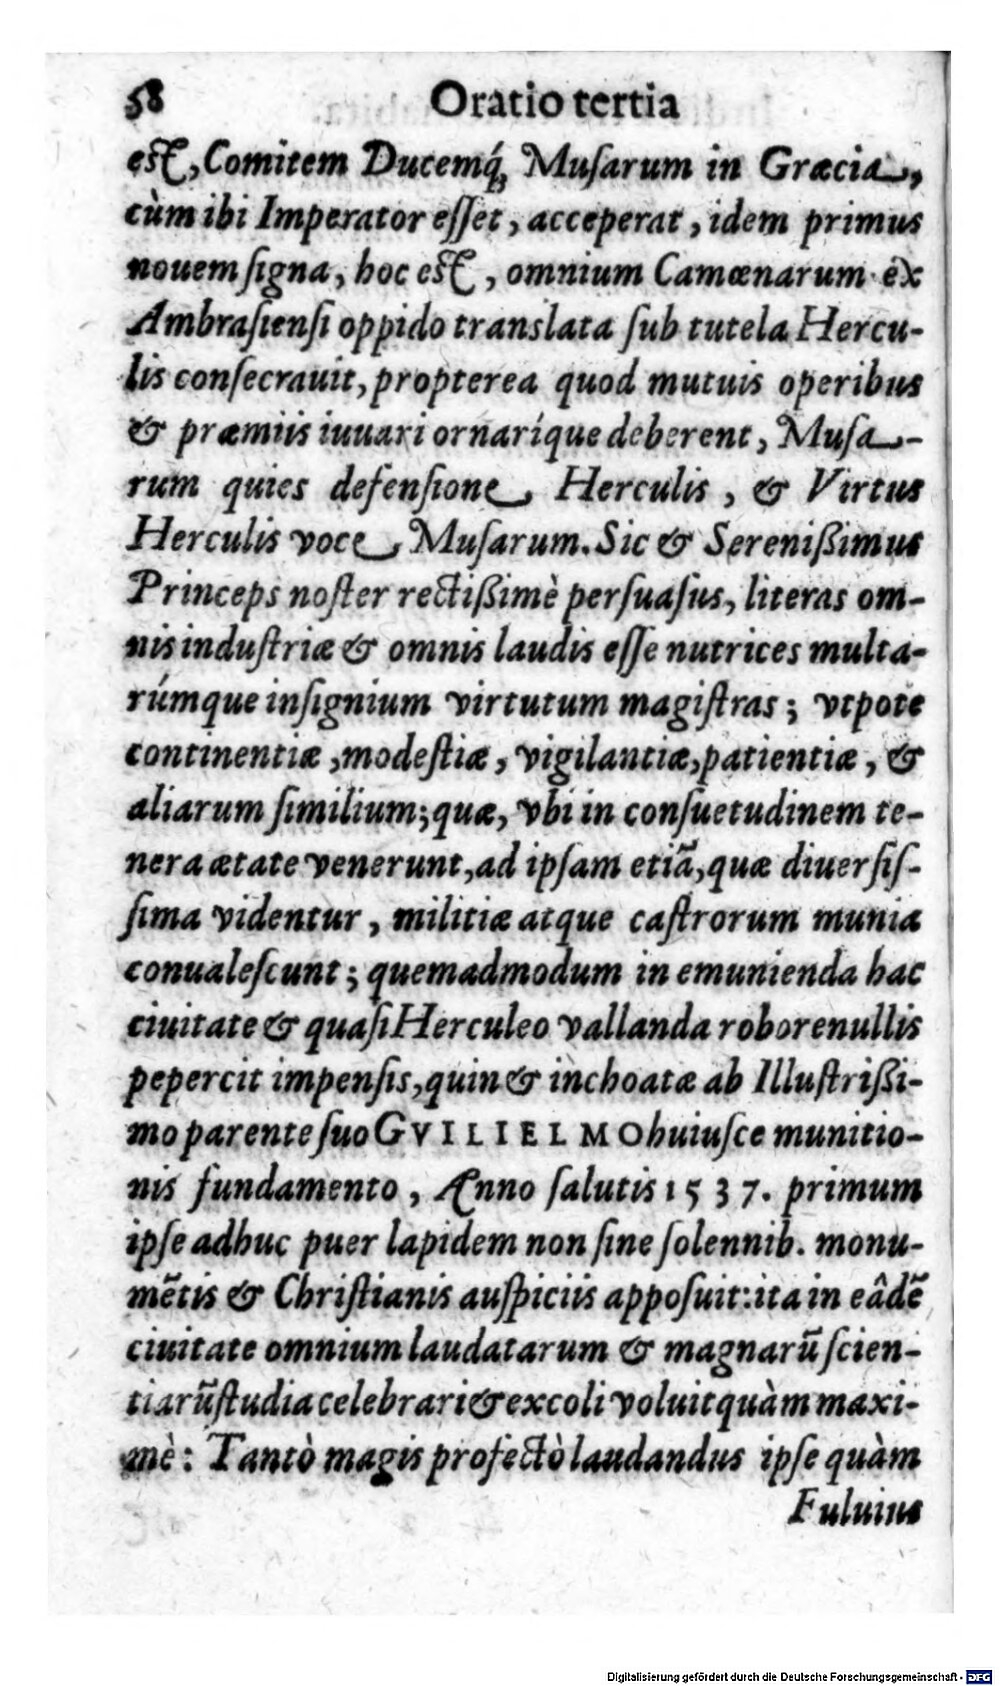 58 Oratio tertia
est, Comitem Ducemq́; Musarum in Græcia,
cùm ibi Imperator esset, acceperat, idem primus
nouem signa, hoc est, omnium Camœnarum ex
Ambrasiensi oppido translata sub tutela Hercu-
lis consecrauit, propterea quod mutuis operibus
& præmiis iuuari ornaríque deberent, Musa-
rum quies defensione Herculis, & Virtus
Herculis voce Musarum. Sic & Serenißimus
Princeps noster rectißimè persuasus, literas om-
nis industriæ & omnis laudis esse nutrices multa-
rúmque insignium virtutum magistras; vtpote
continentiæ, modestiæ, vigilantiæ, patientiæ, &
aliarum similium; quæ, vbi in consuetudinem te-
nera ætate venerunt, ad ipsam etiã, quæ diuersis-
sima videntur, militiæ atque castrorum munia
conualescunt; quemadmodum in emunienda hac
ciuitate & quasi Herculeo vallanda robore nullis
pepercit impensis, quin & inchoatæ ab Illustrißi-
mo parente suo GVILIELMO huiusce munitio-
nis fundamento, Anno salutis 1537. primum
ipse adhuc puer lapidem non sine solennib. monu-
mẽtis & Christianis auspiciis apposuit: ita in eâdẽ
ciuitate omnium laudatarum & magnarũ scien-
tiarũ studia celebrari & excoli voluit quàm maxi-
mè: Tantò magis profectò laudandus ipse quàm
Fuluius
Digitalisierung gefördert durch die Deutsche Forschungsgemeinschaft - DFG